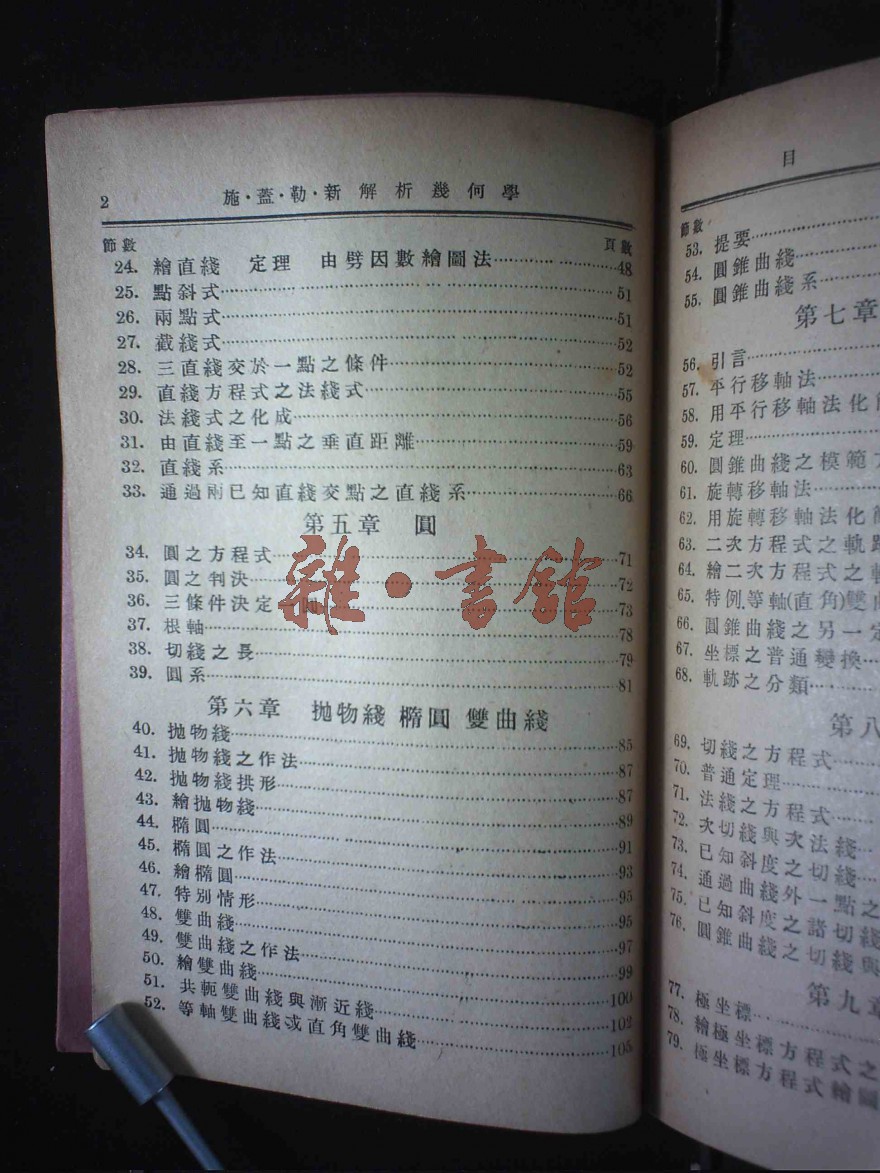 2 施·蓋·勒·新解析幾何學
節數 頁數
24. 繪直綫 定理 由劈因數繪圖法 48
25. 點斜式 51
26. 兩點式 51
27. 截綫式 52
28. 三直綫交於一點之條件 52
29. 直綫方程式之法綫式 55
30. 法綫式之化成 56
31. 由直綫至一點之垂直距離 59
32. 直綫系 63
33. 通過兩已知直綫交點之直綫系 66
第五章 圓
34. 圓之方程式 71
35. 圓之判決 72
36. 三條件決定一圓 73
37. 根軸 78
38. 切綫之長 79
39. 圓系 81
第六章 拋物綫 橢圓 雙曲綫
40. 拋物綫 85
41. 拋物綫之作法 87
42. 拋物綫拱形 87
43. 繪拋物綫 89
44. 橢圓 91
45. 橢圓之作法 93
46. 繪橢圓 95
47. 特別情形 95
48. 雙曲綫 97
49. 雙曲綫之作法 99
50. 繪雙曲綫 100
51. 共軛雙曲綫與漸近綫 102
52. 等軸雙曲綫或直角雙曲綫 105
雜·書館
目
節數
53. 提要
54. 圓錐曲綫
55. 圓錐曲綫系
第七章
56. 引言
57. 平行移軸法
58. 用平行移軸法化
59. 定理
60. 圓錐曲綫之模範
61. 旋轉移軸法
62. 用旋轉移軸法化
63. 二次方程式之軌跡
64. 繪二次方程式之
65. 特例,等軸(直角)雙曲
66. 圓錐曲綫之另一定
67. 坐標之普通變換
68. 軌跡之分類
第八
69. 切綫之方程式
70. 普通定理
71. 法綫之方程式
72. 次切綫與次法綫
73. 已知斜度之切綫
74. 通過曲綫外一點之
75. 已知斜度之諸切綫
76. 圓錐曲綫之切綫與
第九章
77. 極坐標
78. 繪極坐標方程式之
79. 極坐標方程式繪圖